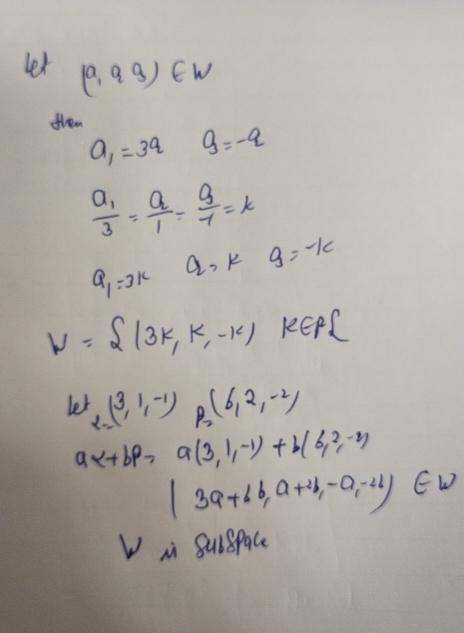 let (a, a, a) ∈ W
then
a₁ = 3a a = -a
a₁/3 = a/1 = a/-1 = k
a₁ = 3k a = k a = -k
W = { (3k, k, -k) k∈R {
let α= (3, 1, -1) β= (6, 2, -2)
aα+bβ = a(3, 1, -1) + b(6, 2, -2)
( 3a+6b, a+2b, -a, -2b) ∈ W
W is subspace